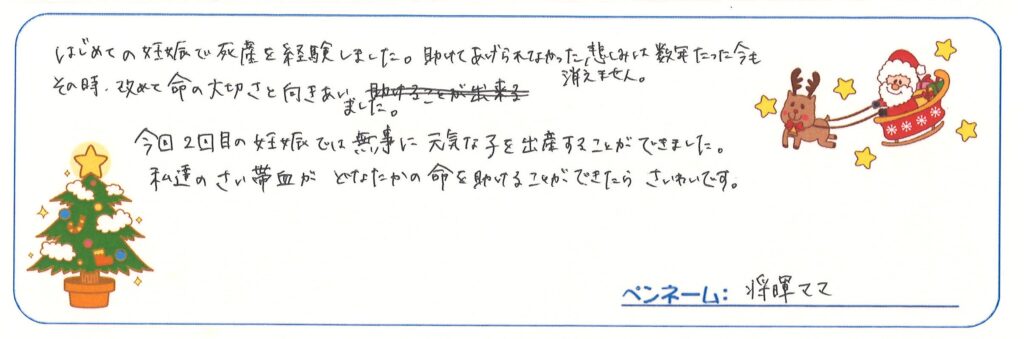 はじめての妊娠で死産を経験しました。助けてあげられなかった悲しみは数年たった今も
消えません。
その時、改めて命の大切さと向きあい
ました。
今回2回目の妊娠では無事に元気な子を出産することができました。
私達のさい帯血がどなたかの命を助けることができたらさいわいです。
ペンネーム: 将暉ママ